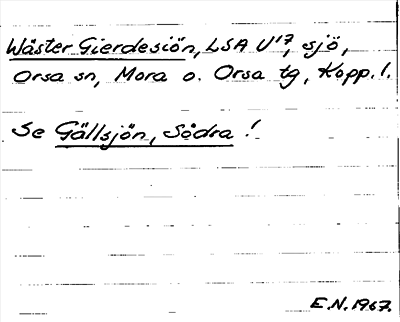 Wäster Gierdesiön, LSA U17, sjö,
Orsa sn, Mora o. Orsa tg, Kopp. l.
Se Gällsjön, Södra !
E.N. 1967.